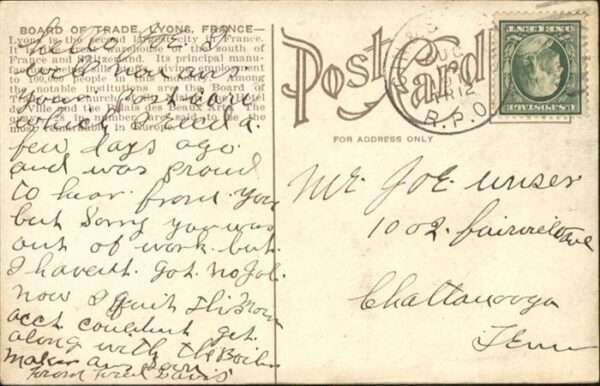 BOARD OF TRADE, LYONS, FRANCE—
Lyons is the second largest city in France.
It is the great warehouse of the south of
France and Switzerland. Its principal manu-
to 100,000 people in this industry. Among
the notable institutions are the Board of
Trade,
de Ville and the Palais des Beaux Arts. The
are said to be the
most remarkable in Europe.
Your Post Card
which I received a
few days ago
and was proud
to hear from you
but Sorry you was
out of work but
I havent got no Job
now I quit this
acct couldent get
along with the Boiler
maker
From Fred Davis
Post Card
FOR ADDRESS ONLY
AUG
TR 12
R.P.O.
U.S. POSTAGE
ONE CENT
Mr Joe Unser
1002 fairview Ave
Chattanooga
Tenn